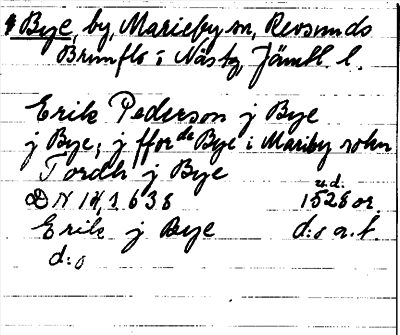 Bye, by, Marieby sn, Revsunds
Brunflo i Näs tg, Jämtl. l.
Erik Pederson j Bye
j Bye; j ffor de Bye i Mariby sokn
Tordh j Bye
DN 14, 1638 u.d. 1528 or.
Erik j Bye d:o a.f.
d:o